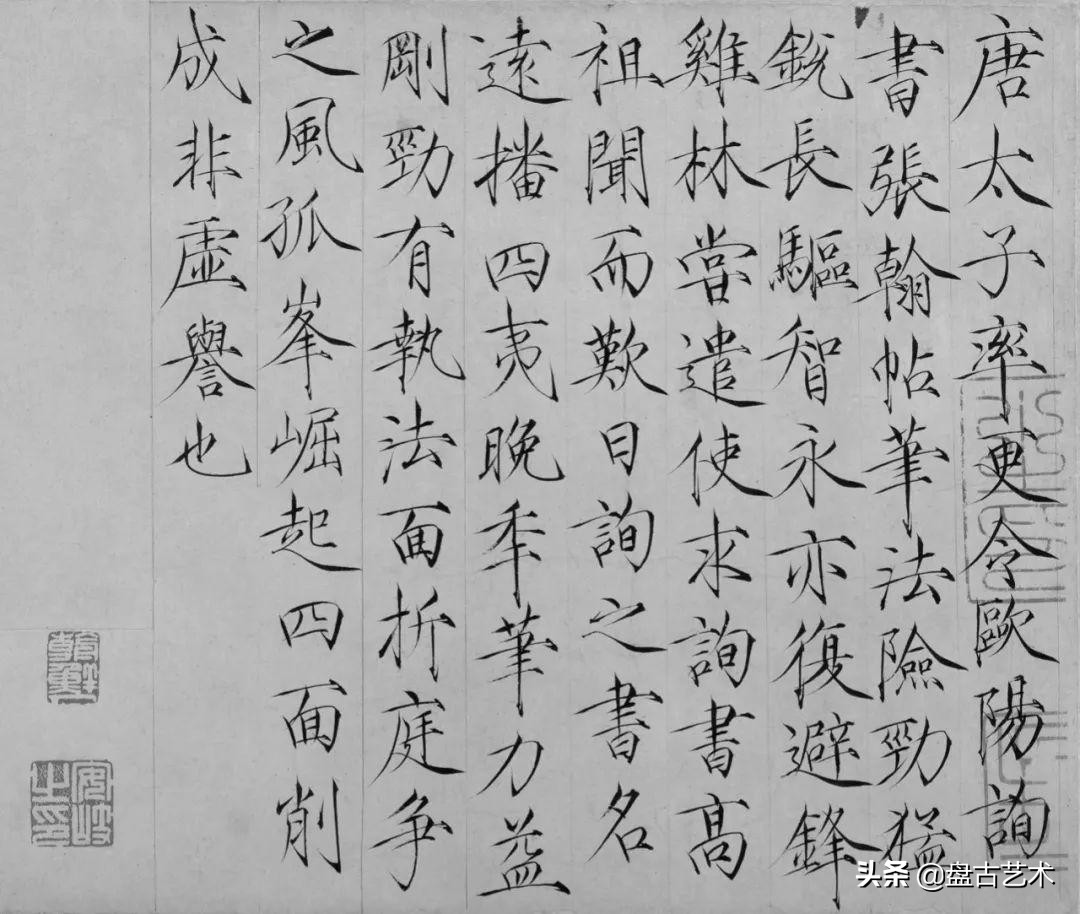 唐太子率更令歐陽詢
書張翰帖筆法險勁猛
銳長驅智永亦復避鋒
雞林嘗遣使求詢書高
祖聞而歎曰詢之書名
遠播四夷晚年筆力益
剛勁有執法面折庭爭
之風孤峯崛起四面削
成非虛譽也
头条@盘古艺术